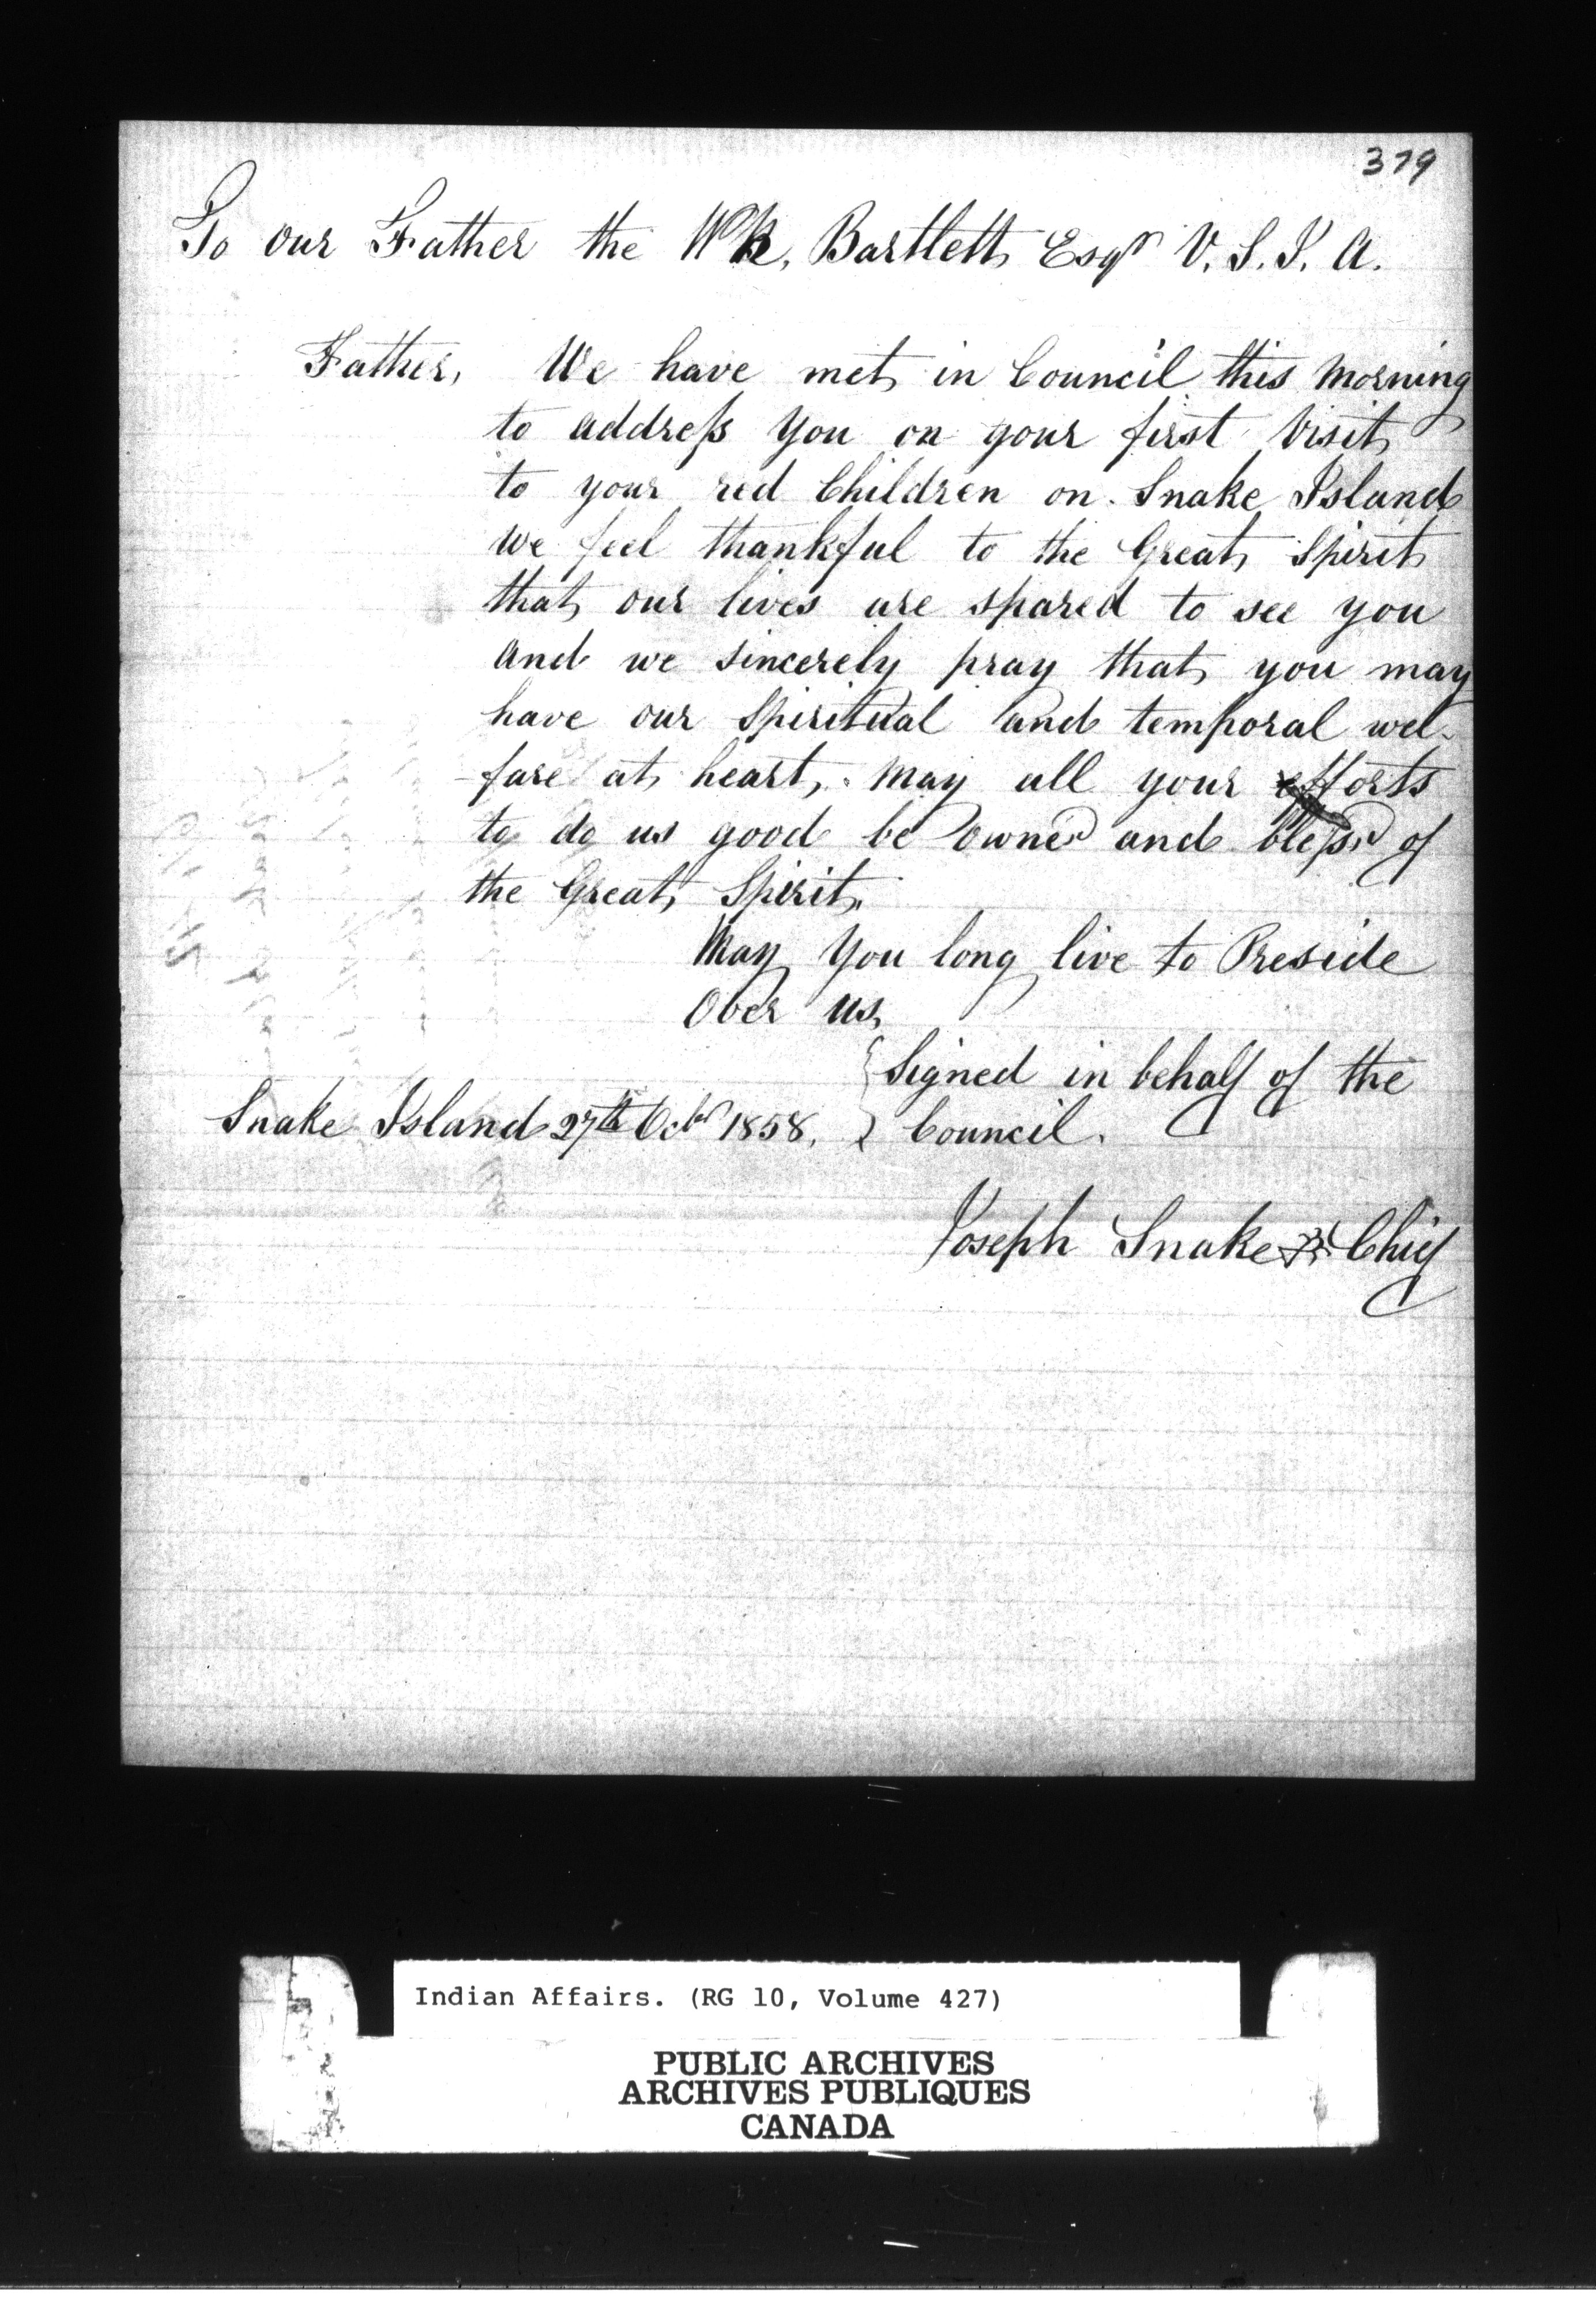 379
To our Father the W R. Bartlett Esqr V. S. I. A.
Father, We have met in Council this Morning
to address You on your first Visit
to your red Children on Snake Island
we feel thankful to the Great Spirit
that our lives are spared to see you
and we sincerely pray that you may
have our Spiritual and temporal wel-
fare at heart, May all your efforts
to do us good be owned and blessd of
the Great Spirit.
May You long live to Preside
Over us,
Signed in behalf of the
Snake Island 27th Octbr 1858. Council.
Joseph Snake Chief
Indian Affairs. (RG 10, Volume 427)
PUBLIC ARCHIVES
ARCHIVES PUBLIQUES
CANADA